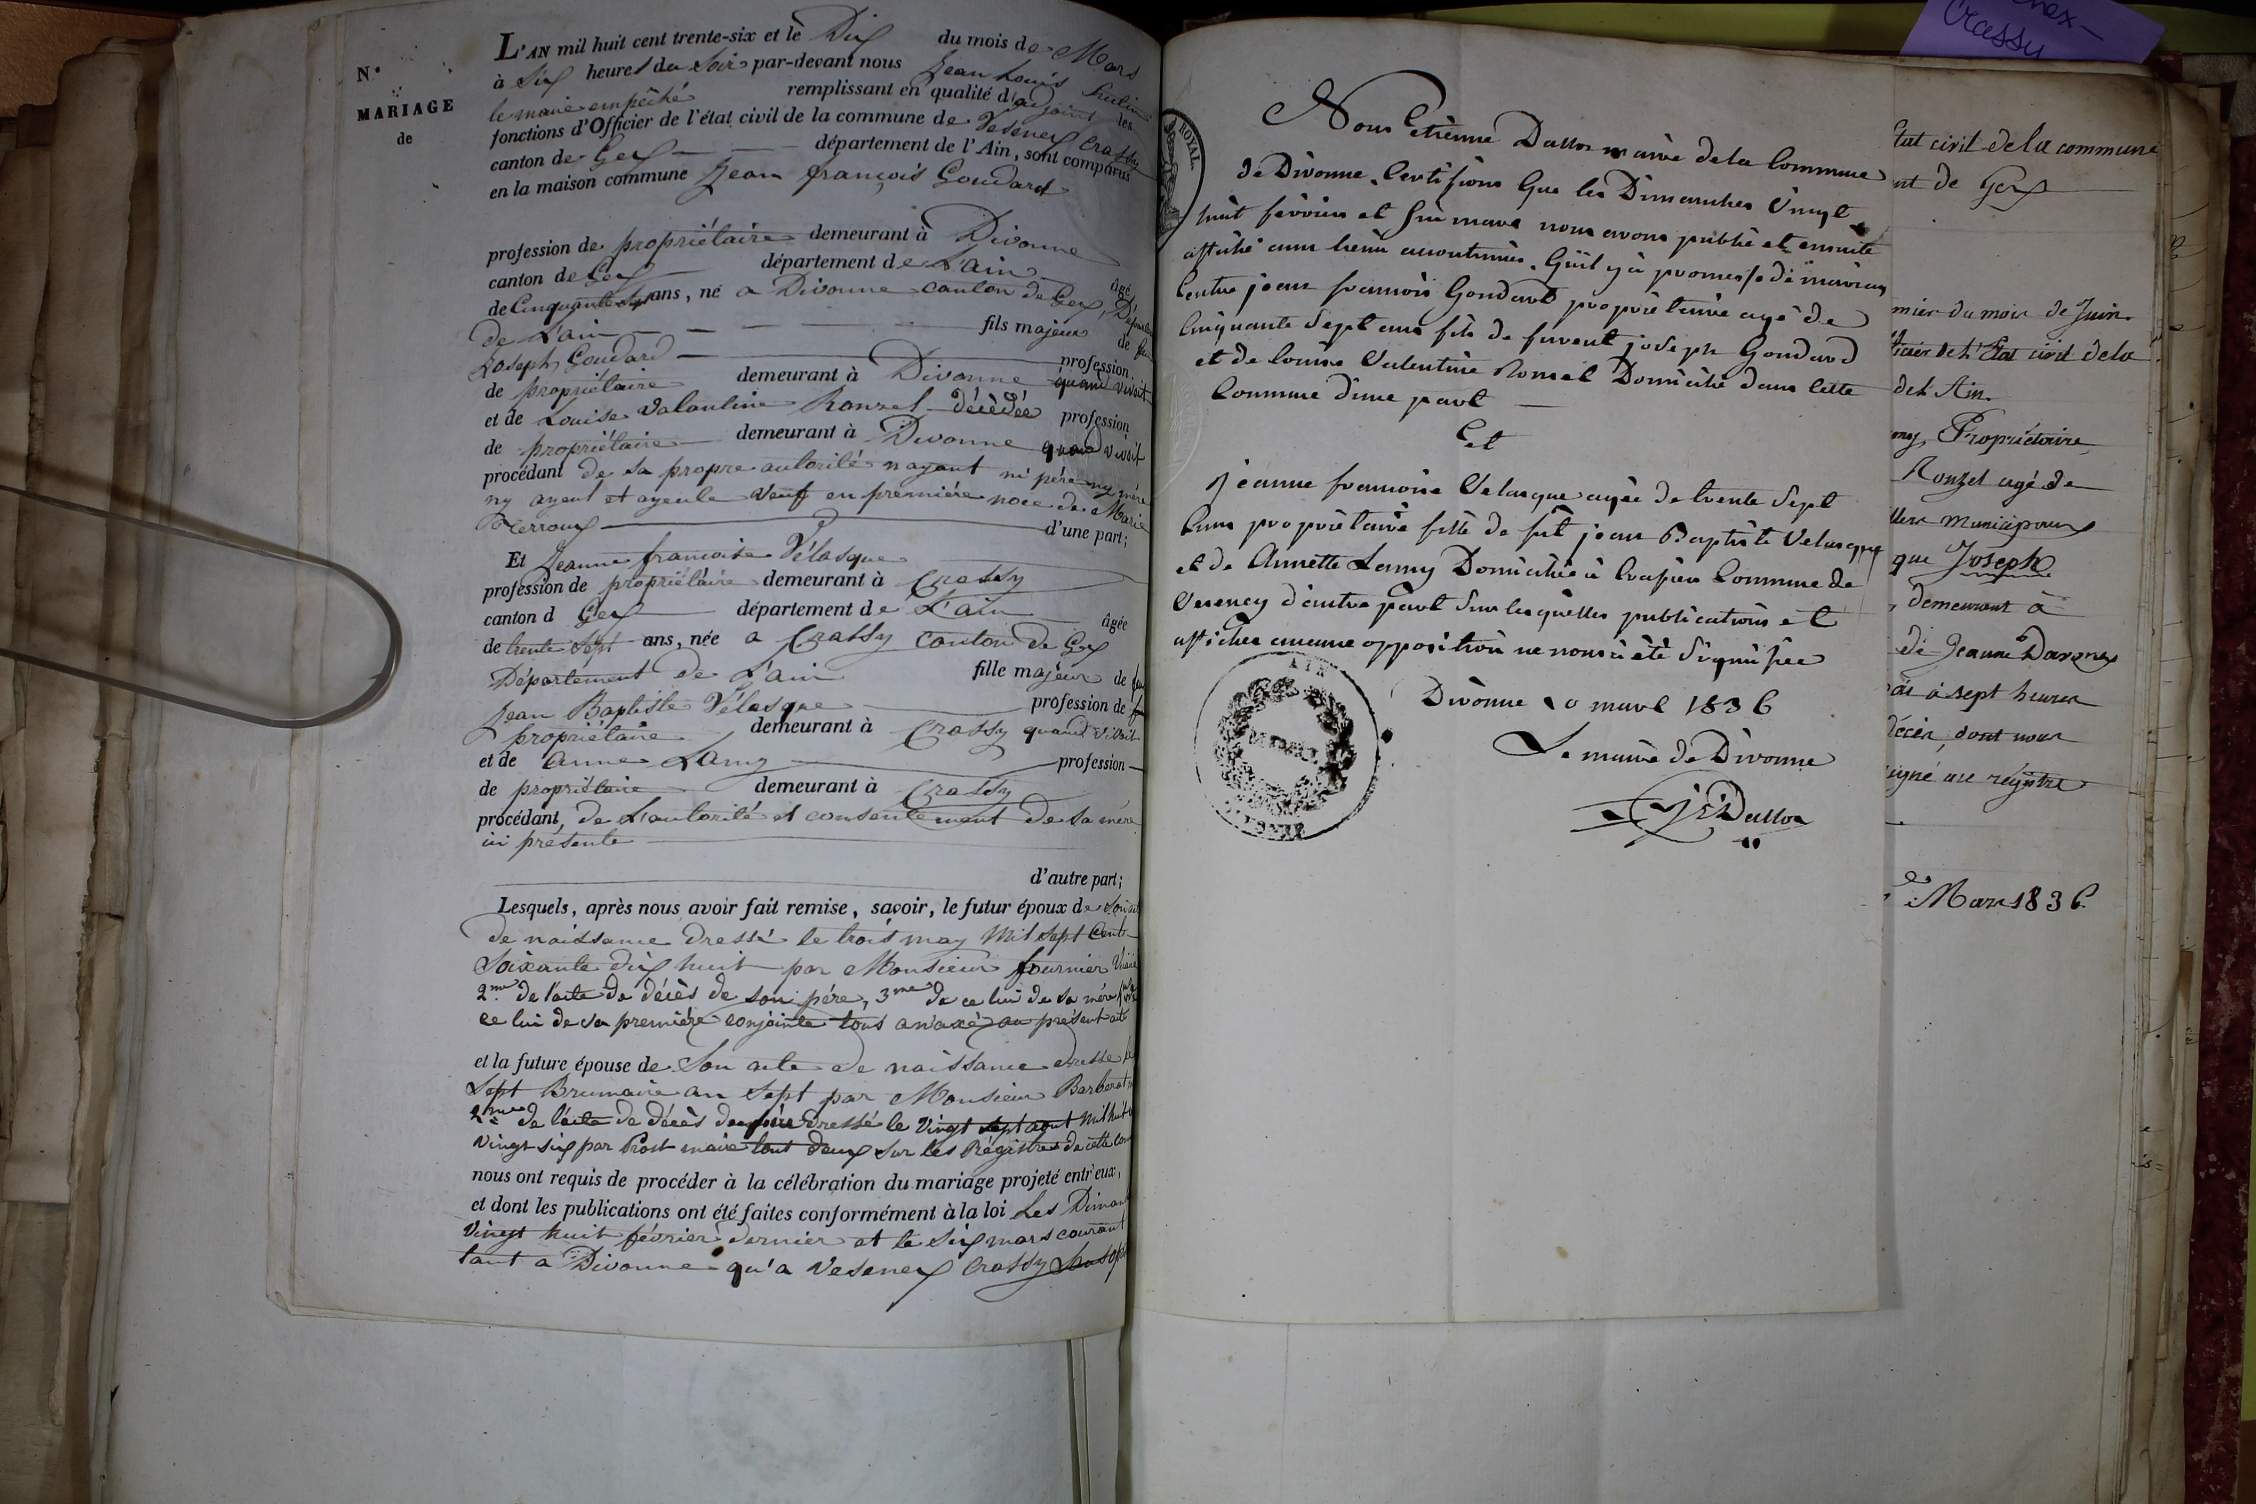 N.º
MARIAGE
de
L'AN mil huit cent trente-six et le Dix du mois de Mars
à Six heures du Soir par-devant nous Jean Louis
le maire empêché remplissant en qualité d'adjoint les
fonctions d'Officier de l'état civil de la commune de Vesenex Crassy
canton de Gex département de l'Ain, sont comparus
en la maison commune Jean françois Goudard
profession de propriétaire demeurant à Divonne
canton de Gex département de L'ain âgé
de Cinquante sept ans, né a Divonne canton de Gex, Départ
de L'ain fils majeur de feu
Joseph Goudard profession
de propriétaire demeurant à Divonne quand vivait
et de Louise Valantine Ronzel décédée profession
de propriétaire demeurant à Divonne quand vivoit
procédant de sa propre autorité nayant ni père ny mère
ny ayeul et ayeule Veuf en première noce de Marie
d'une part;
Et Jeanne françoise Vélasque
profession de propriétaire demeurant à Crassy
canton d Gex département de L'ain âgée
de trente sept ans, née a Crassy canton de Gex
Département de L'ain fille majeur de feu
Jean Baptiste Vélasque profession de
propriétaire demeurant à Crassy quand vivait
et de Anne Lamy profession
de propriétaire demeurant à Crassy
procédant, de L'autorité et consentement de sa mère
ici présente
d'autre part;
Lesquels, après nous avoir fait remise, savoir, le futur époux de Son
de naissance dressé le trois may Mil Sept Cent
Soixante dix huit par Monsieur fournier
2.me de l'acte de décès de son père, 3me de ce lui de sa mère
ce lui de sa première conjointe tous anaxé au présent acte
et la future épouse de Son acte de naissance dressé le
Sept Brumaire an Sept par Monsieur Barberat
2.me de l'acte de décès de père dressé le Vingt sept aout Mil huit
Vingt six par Prost maire tout deux sur les Régistres de cette com
nous ont requis de procéder à la célébration du mariage projeté entr'eux,
et dont les publications ont été faites conformément à la loi Les Diman
Vingt huit février dernier et le Six mars courant
tant a Divonne qu'a Vesenex Crassy
ROYAL
Nous Etienne Dallos maire de la Commune
de Divonne, Certifions que les Dimanches Vingt
huit février et Six mars nous avons publié et ensuite
affiché aux lieux accoutumés, Qüil y à promesse de mariage
Entre jean francois Goudard propriètaire agé de
Cinquante Sept ans fils de fuvent joseph Goudard
et de Louise Valentine Ronzel Domicilié dans cette
Commune d'une part
Et
jéanne francoise Velasque agée de trente Sept
ans propriètaire fille de fût jean Baptiste Velasque
et de Annette Lamy Domiciliée à Crassier Commune de
Vesency d'autre part Sur lesquelles publications et
affiches aucune opposition ne nous à été Signifiée
Divonne 10 mars 1836
Le maire de Divonne
Dallos
AIN
DIVONNE
Crassy
Etat civil de la commune
nt de Gex
mier du mois de Juin
ficier de l'Etat civil de la
de l'Ain.
my, Propriétaire,
Ronzel agé de
llers municipaux
que Joseph
, demeurant à
de Jeanne
à sept heures
décès, dont nous
signé au régistre
Mars 1836